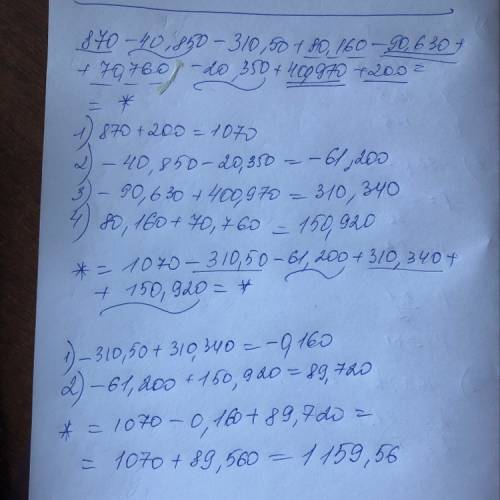 870 - 40,850 - 310,50 + 80,160 - 90,630 +
+ 70,760 - 20,350 + 400,970 + 200 =
= *
1) 870 + 200 = 1070
2) - 40,850 - 20,350 = - 61,200
3) - 90,630 + 400,970 = 310,340
4) 80,160 + 70,760 = 150,920
* = 1070 - 310,50 - 61,200 + 310,340 +
+ 150,920 = *
1) - 310,50 + 310,340 = - 0,160
2) - 61,200 + 150,920 = 89,720
* = 1070 - 0,160 + 89,720 =
= 1070 + 89,560 = 1159,56